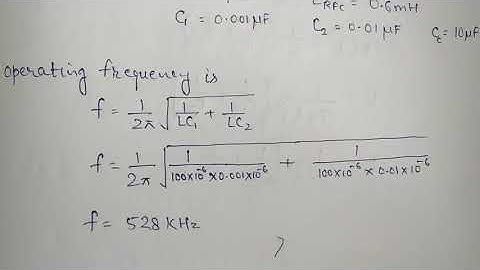 L_RFC = 0.6mH
C₁ = 0.001μF C₂ = 0.01μF C_c = 10μF
operating frequency is
f = 1/2π √(1/LC₁ + 1/LC₂)
f = 1/2π √(1/100×10⁻⁶×0.001×10⁻⁶ + 1/100×10⁻⁶×0.01×10⁻⁶)
f = 528KHz